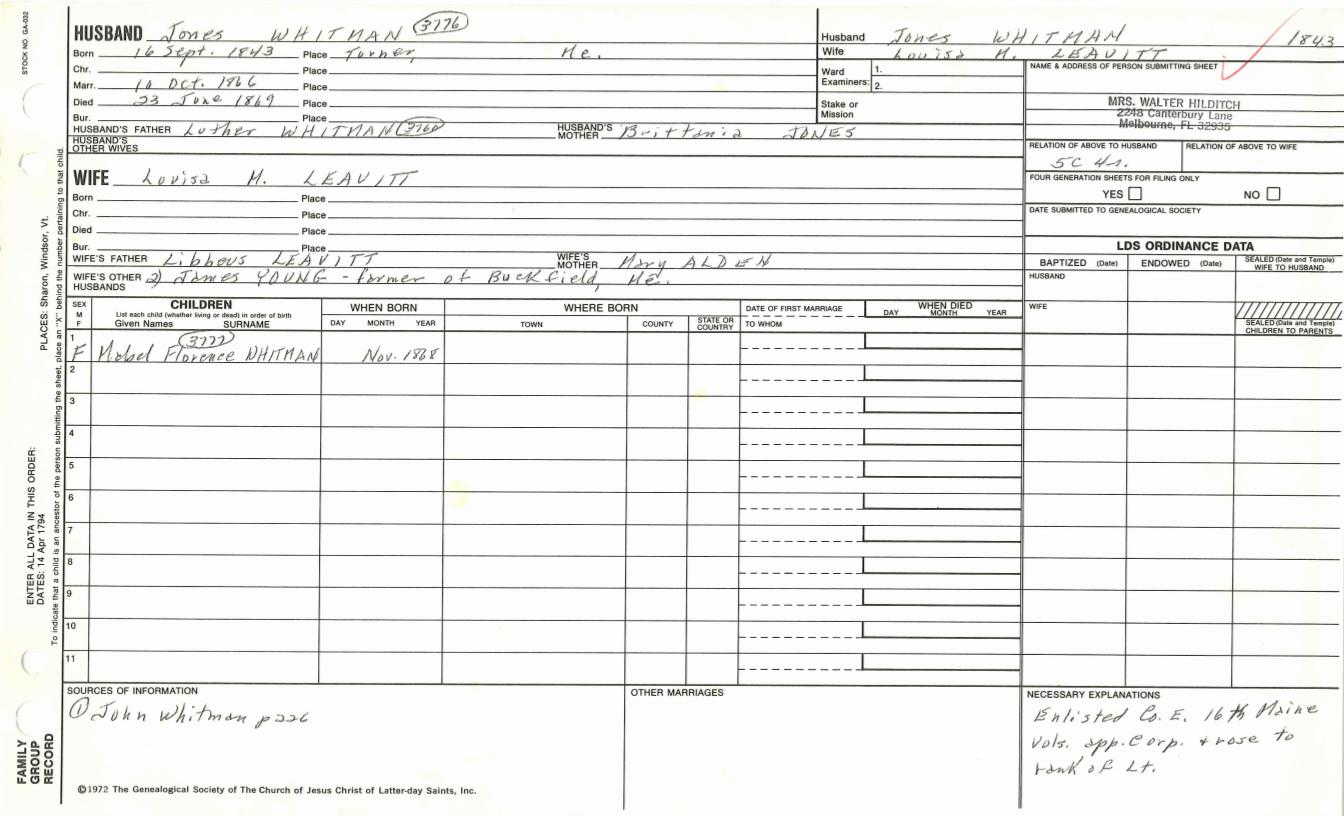 STOCK NO. GA-032
HUSBAND Jones WHITMAN (3776)
Born 16 Sept. 1843 Place Turner, Me.
Chr. Place
Marr. 10 Oct. 1866 Place
Died 23 June 1869 Place
Bur. Place
HUSBAND'S FATHER Luther WHITMAN (3760) HUSBAND'S MOTHER Brittania JONES
HUSBAND'S OTHER WIVES
WIFE Louisa M. LEAVITT
Born Place
Chr. Place
Died Place
Bur. Place
WIFE'S FATHER Libbeus LEAVITT WIFE'S MOTHER Mary ALDEN
WIFE'S OTHER HUSBANDS 2) James YOUNG - former of Buckfield, Me.
Husband Jones WHITMAN 1843
Wife Louisa M. LEAVITT
Ward Examiners: 1.
2.
Stake or Mission
NAME & ADDRESS OF PERSON SUBMITTING SHEET
MRS. WALTER HILDITCH
2248 Canterbury Lane
Melbourne, FL 32935
RELATION OF ABOVE TO HUSBAND RELATION OF ABOVE TO WIFE
5C 4r.
FOUR GENERATION SHEETS FOR FILING ONLY
YES NO
DATE SUBMITTED TO GENEALOGICAL SOCIETY
LDS ORDINANCE DATA
BAPTIZED (Date) ENDOWED (Date) SEALED (Date and Temple) WIFE TO HUSBAND
HUSBAND
WIFE
SEALED (Date and Temple) CHILDREN TO PARENTS
SEX M F
CHILDREN
List each child (whether living or dead) in order of birth
Given Names SURNAME
WHEN BORN
DAY MONTH YEAR
WHERE BORN
TOWN COUNTY STATE OR COUNTRY
DATE OF FIRST MARRIAGE
TO WHOM
WHEN DIED
DAY MONTH YEAR
1 (3777)
F Mabel Florence WHITMAN Nov. 1868
2
3
4
5
6
7
8
9
10
11
SOURCES OF INFORMATION
① John Whitman p226
OTHER MARRIAGES
NECESSARY EXPLANATIONS
Enlisted Co. E. 16th Maine
Vols. app. Corp. & rose to
rank of Lt.
©1972 The Genealogical Society of The Church of Jesus Christ of Latter-day Saints, Inc.
FAMILY
GROUP
RECORD
ENTER ALL DATA IN THIS ORDER:
DATES: 14 Apr 1794
PLACES: Sharon, Windsor, Vt.
To indicate that a child is an ancestor of the person submitting the sheet, place an "X" behind the number pertaining to that child.